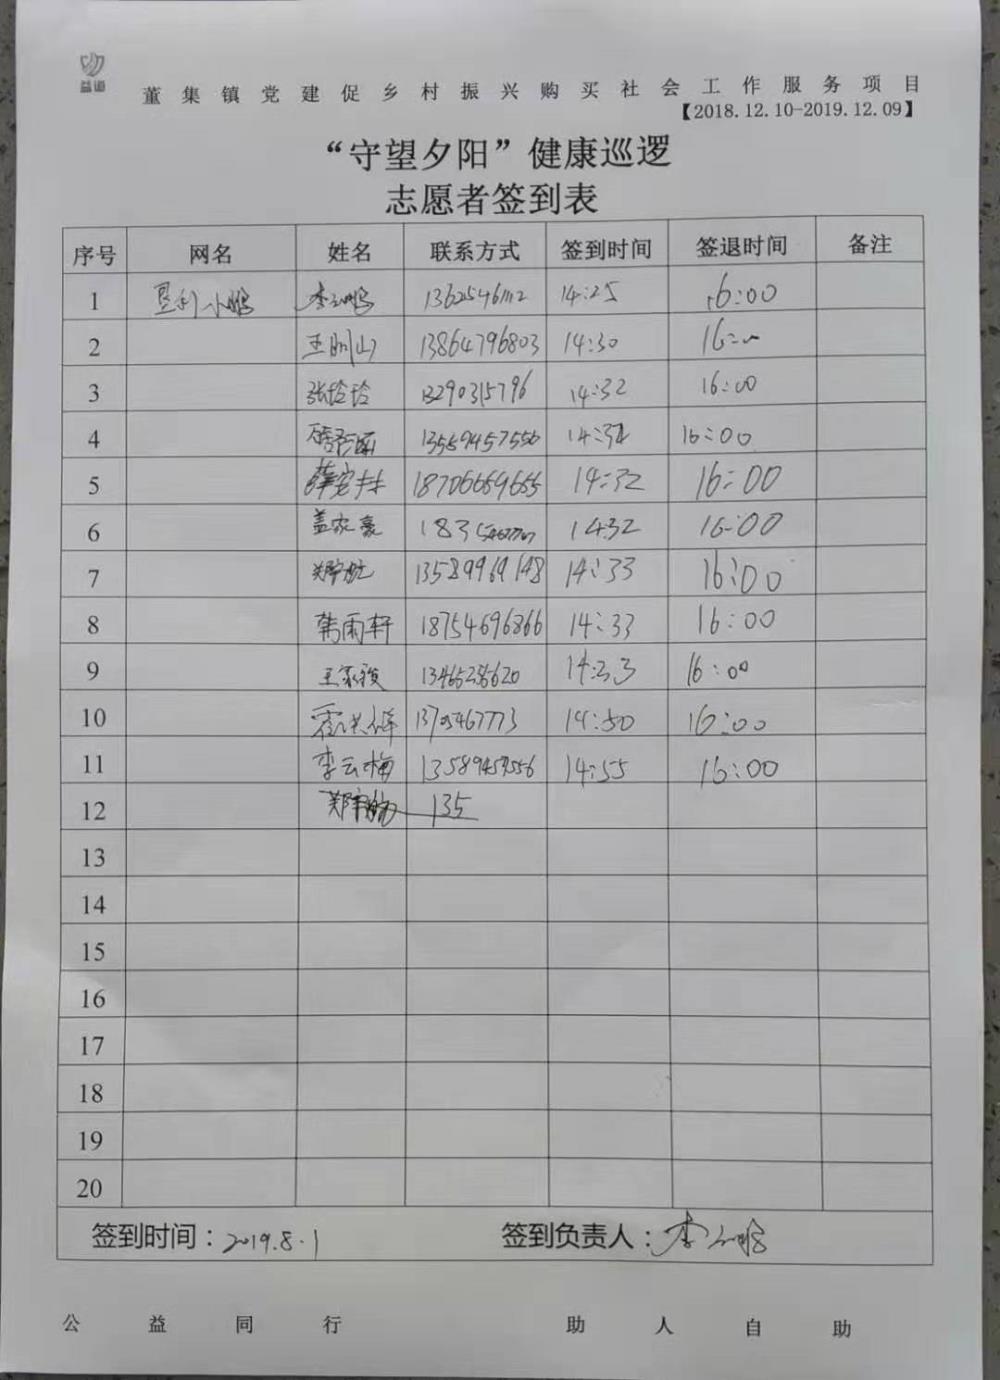 益道
董集镇党建促乡村振兴购买社会工作服务项目
【2018.12.10-2019.12.09】
“守望夕阳”健康巡逻
志愿者签到表
序号 网名 姓名 联系方式 签到时间 签退时间 备注
1 垦利小鹏 李云鹏 14:25 16:00
2 王明山 13864796803 14:30 16:00
3 张玲玲 13290315796 14:32 16:00
4 13589457556 14:32 16:00
5 薛安林 18706669655 14:32 16:00
6 盖家豪 14:32 16:00
7 郑宇航 13589969148 14:33 16:00
8 韩雨轩 18754696866 14:33 16:00
9 王家俊 14:33 16:00
10 14:50 16:00
11 李云梅 13589457556 14:55 16:00
12 郑宇航 135
13
14
15
16
17
18
19
20
签到时间：2019.8.1 签到负责人：李云鹏
公益同行 助人自助